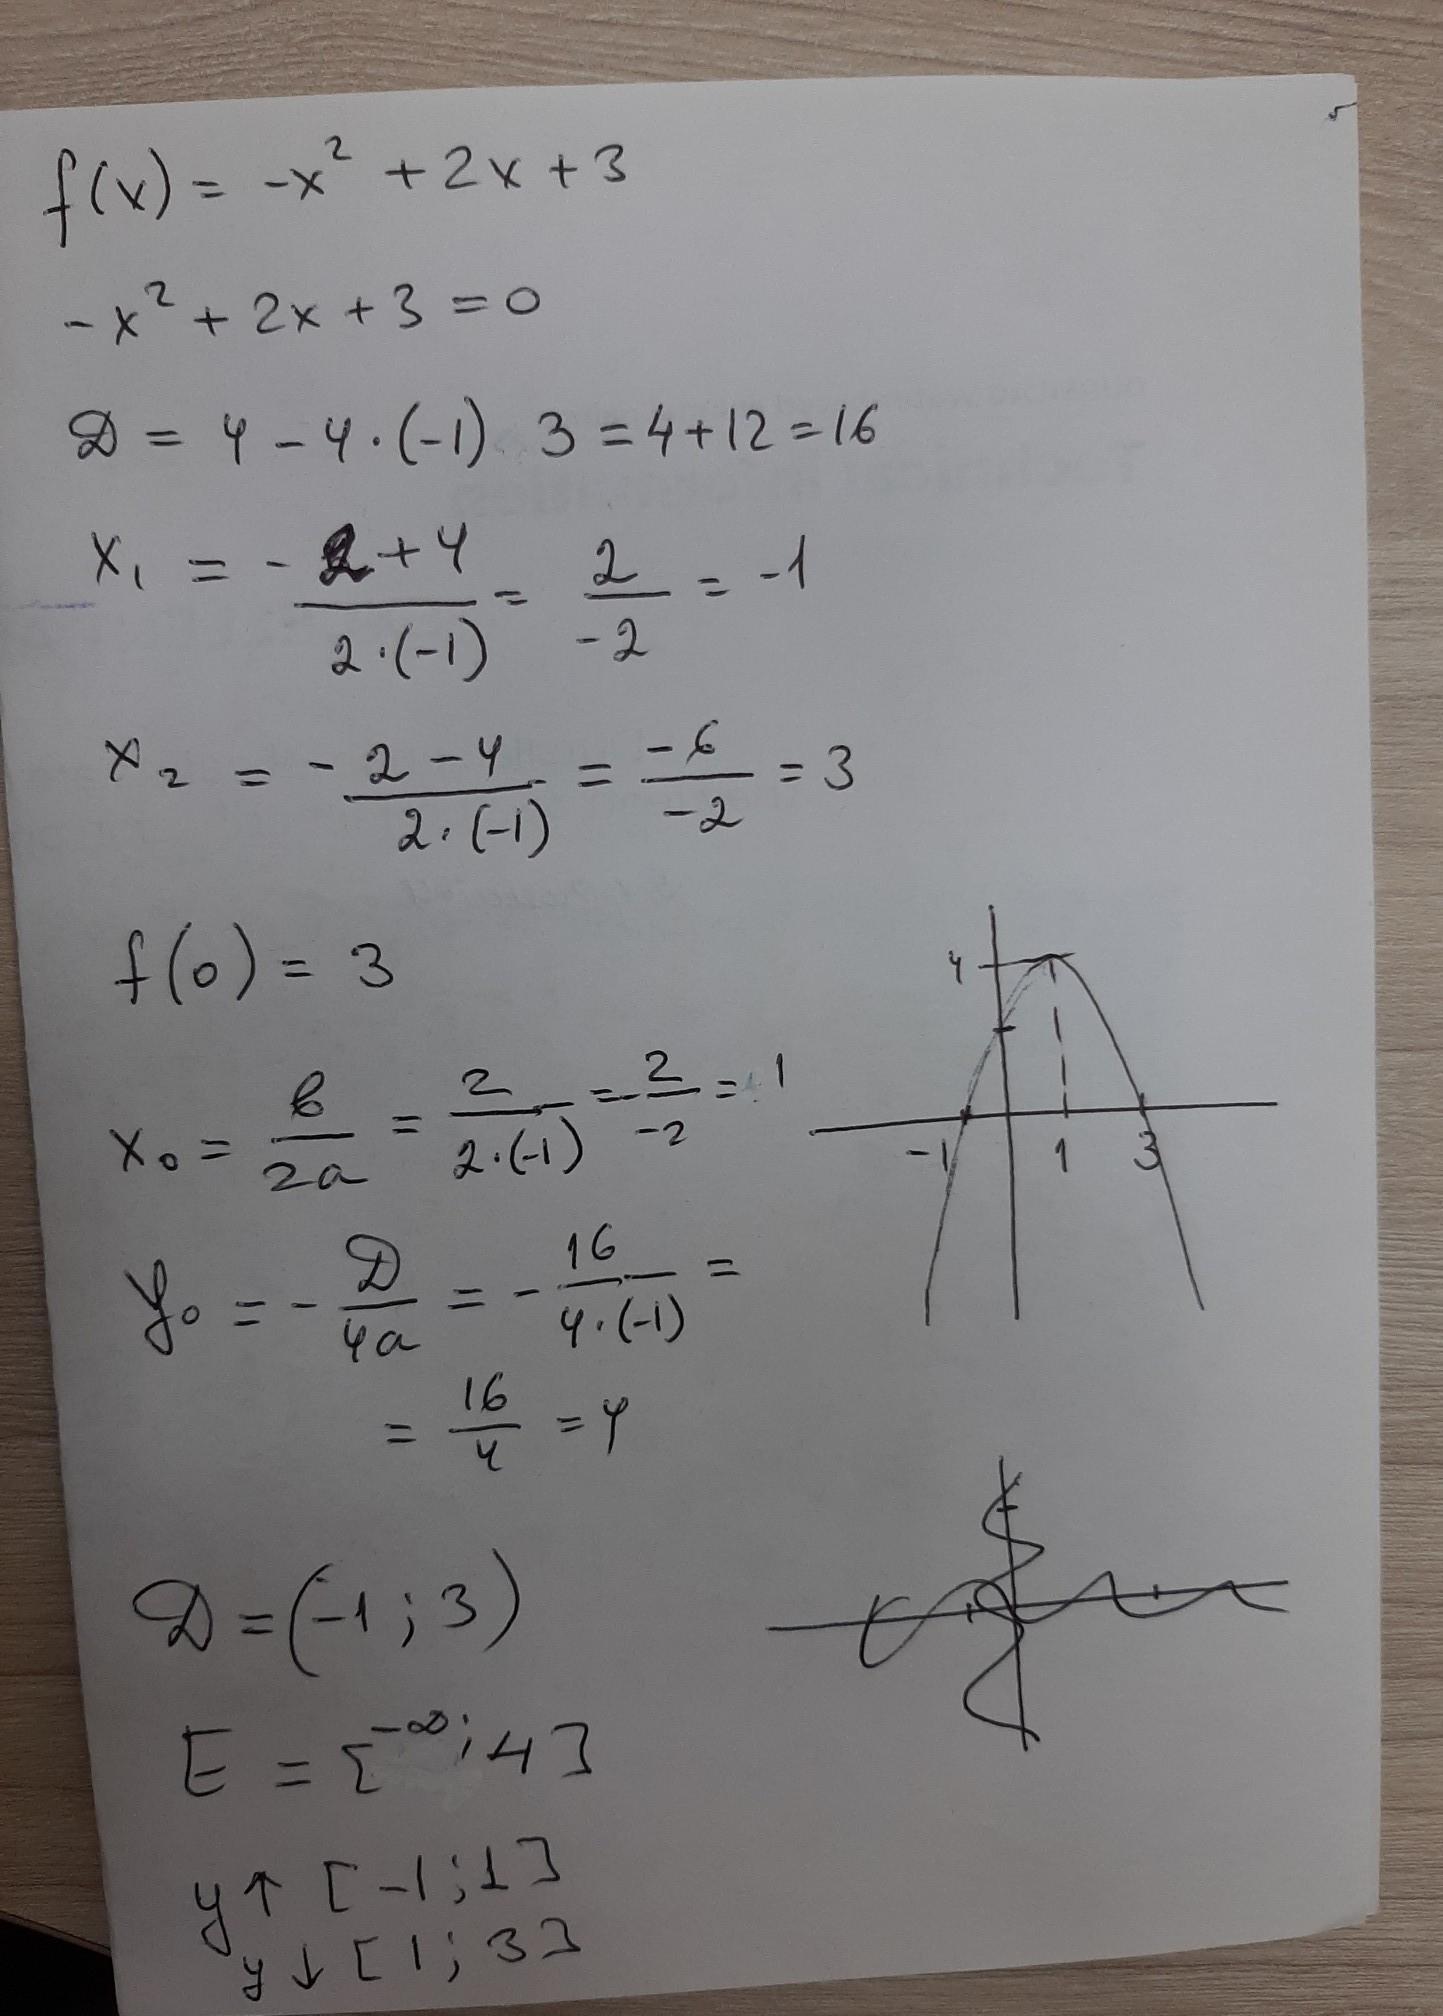 f(x) = -x² + 2x + 3
-x² + 2x + 3 = 0
D = 4 - 4·(-1) 3 = 4+12 = 16
x₁ = -2+4/2·(-1) = 2/-2 = -1
x₂ = -2-4/2·(-1) = -6/-2 = 3
f(0) = 3
x₀ = b/2a = 2/2·(-1) = -2/-2 = 1
y₀ = -D/4a = -16/4·(-1) =
= 16/4 = 4
4
-1 1 3
D = (-1; 3)
E = [-∞; 4]
y↑ [-1; 1]
y↓ [1; 3]